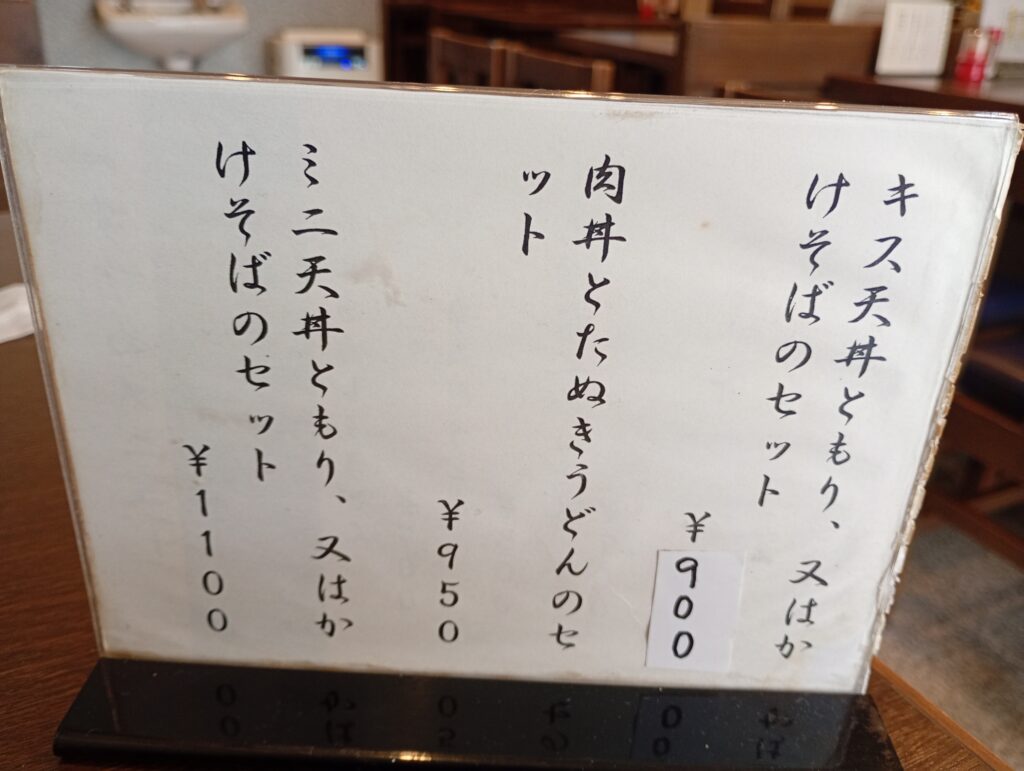 キス天丼ともり、又はか
けそばのセット
¥900
肉丼とたぬきうどんのセ
ット
¥950
ミニ天丼ともり、又はか
けそばのセット
¥1100